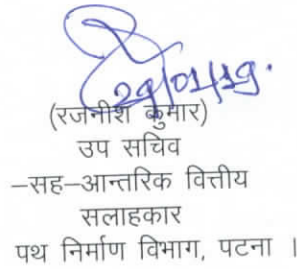 29/01/19.
(रजनीश कुमार)
उप सचिव
–सह–आन्तरिक वित्तीय
सलाहकार
पथ निर्माण विभाग, पटना ।